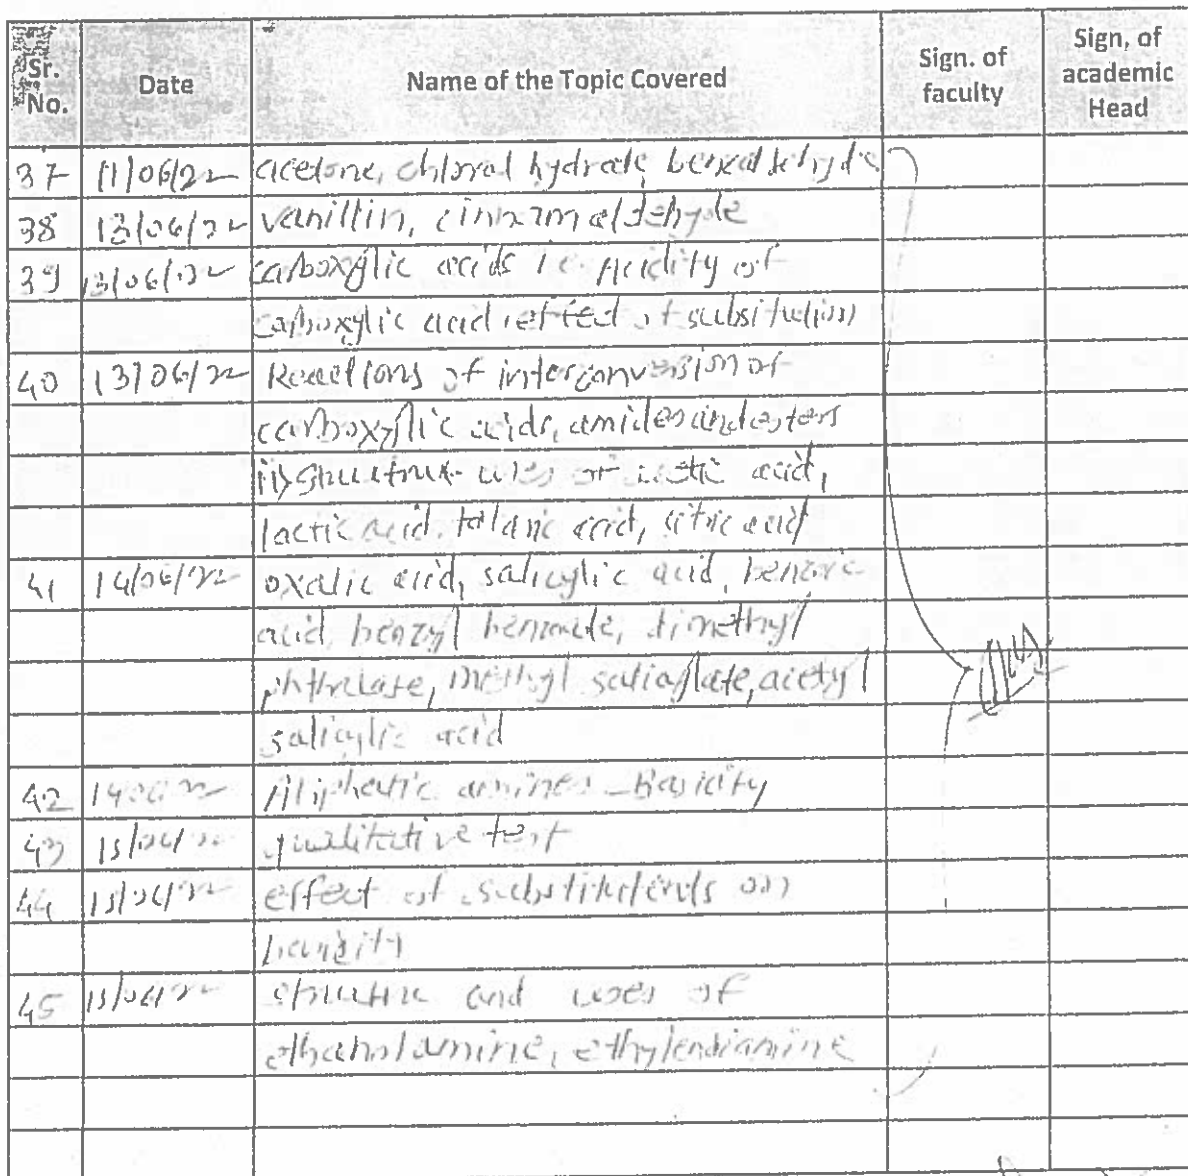 Sr. No. Date Name of the Topic Covered Sign. of faculty Sign, of academic Head
37 11/06/22 acetone, chloral hydrate, benzaldehyde
38 13/06/22 vanillin, cinnamaldehyde
39 13/06/22 carboxylic acids i.e. Acidity of
carboxylic acid, effect of substitution
40 13/06/22 Reactions of interconversion of
carboxylic acids, amides and esters
ii) structure uses of acetic acid,
lactic acid, tartaric acid, citric acid
41 14/06/22 oxalic acid, salicylic acid, benzoic
acid, benzyl benzoate, dimethyl
phthalate, methyl salicylate, acetyl
salicylic acid
42 14/06/22 Aliphatic amines - Basicity
43 15/06/22 qualitative test
44 15/06/22 effect of substituents on
basicity
45 15/06/22 structure and uses of
ethanolamine, ethylendiamine